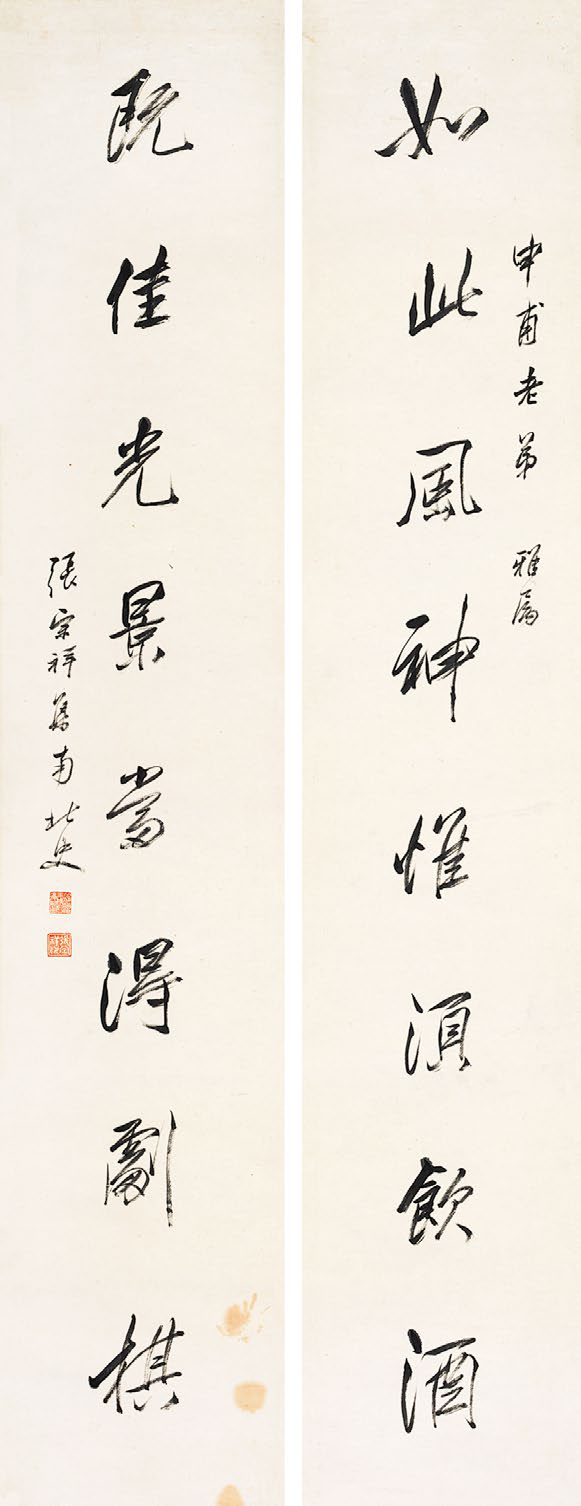 申甫老弟 雅属
如此風神惟須飲酒
既佳光景當得劇棋
張宗祥集南北史